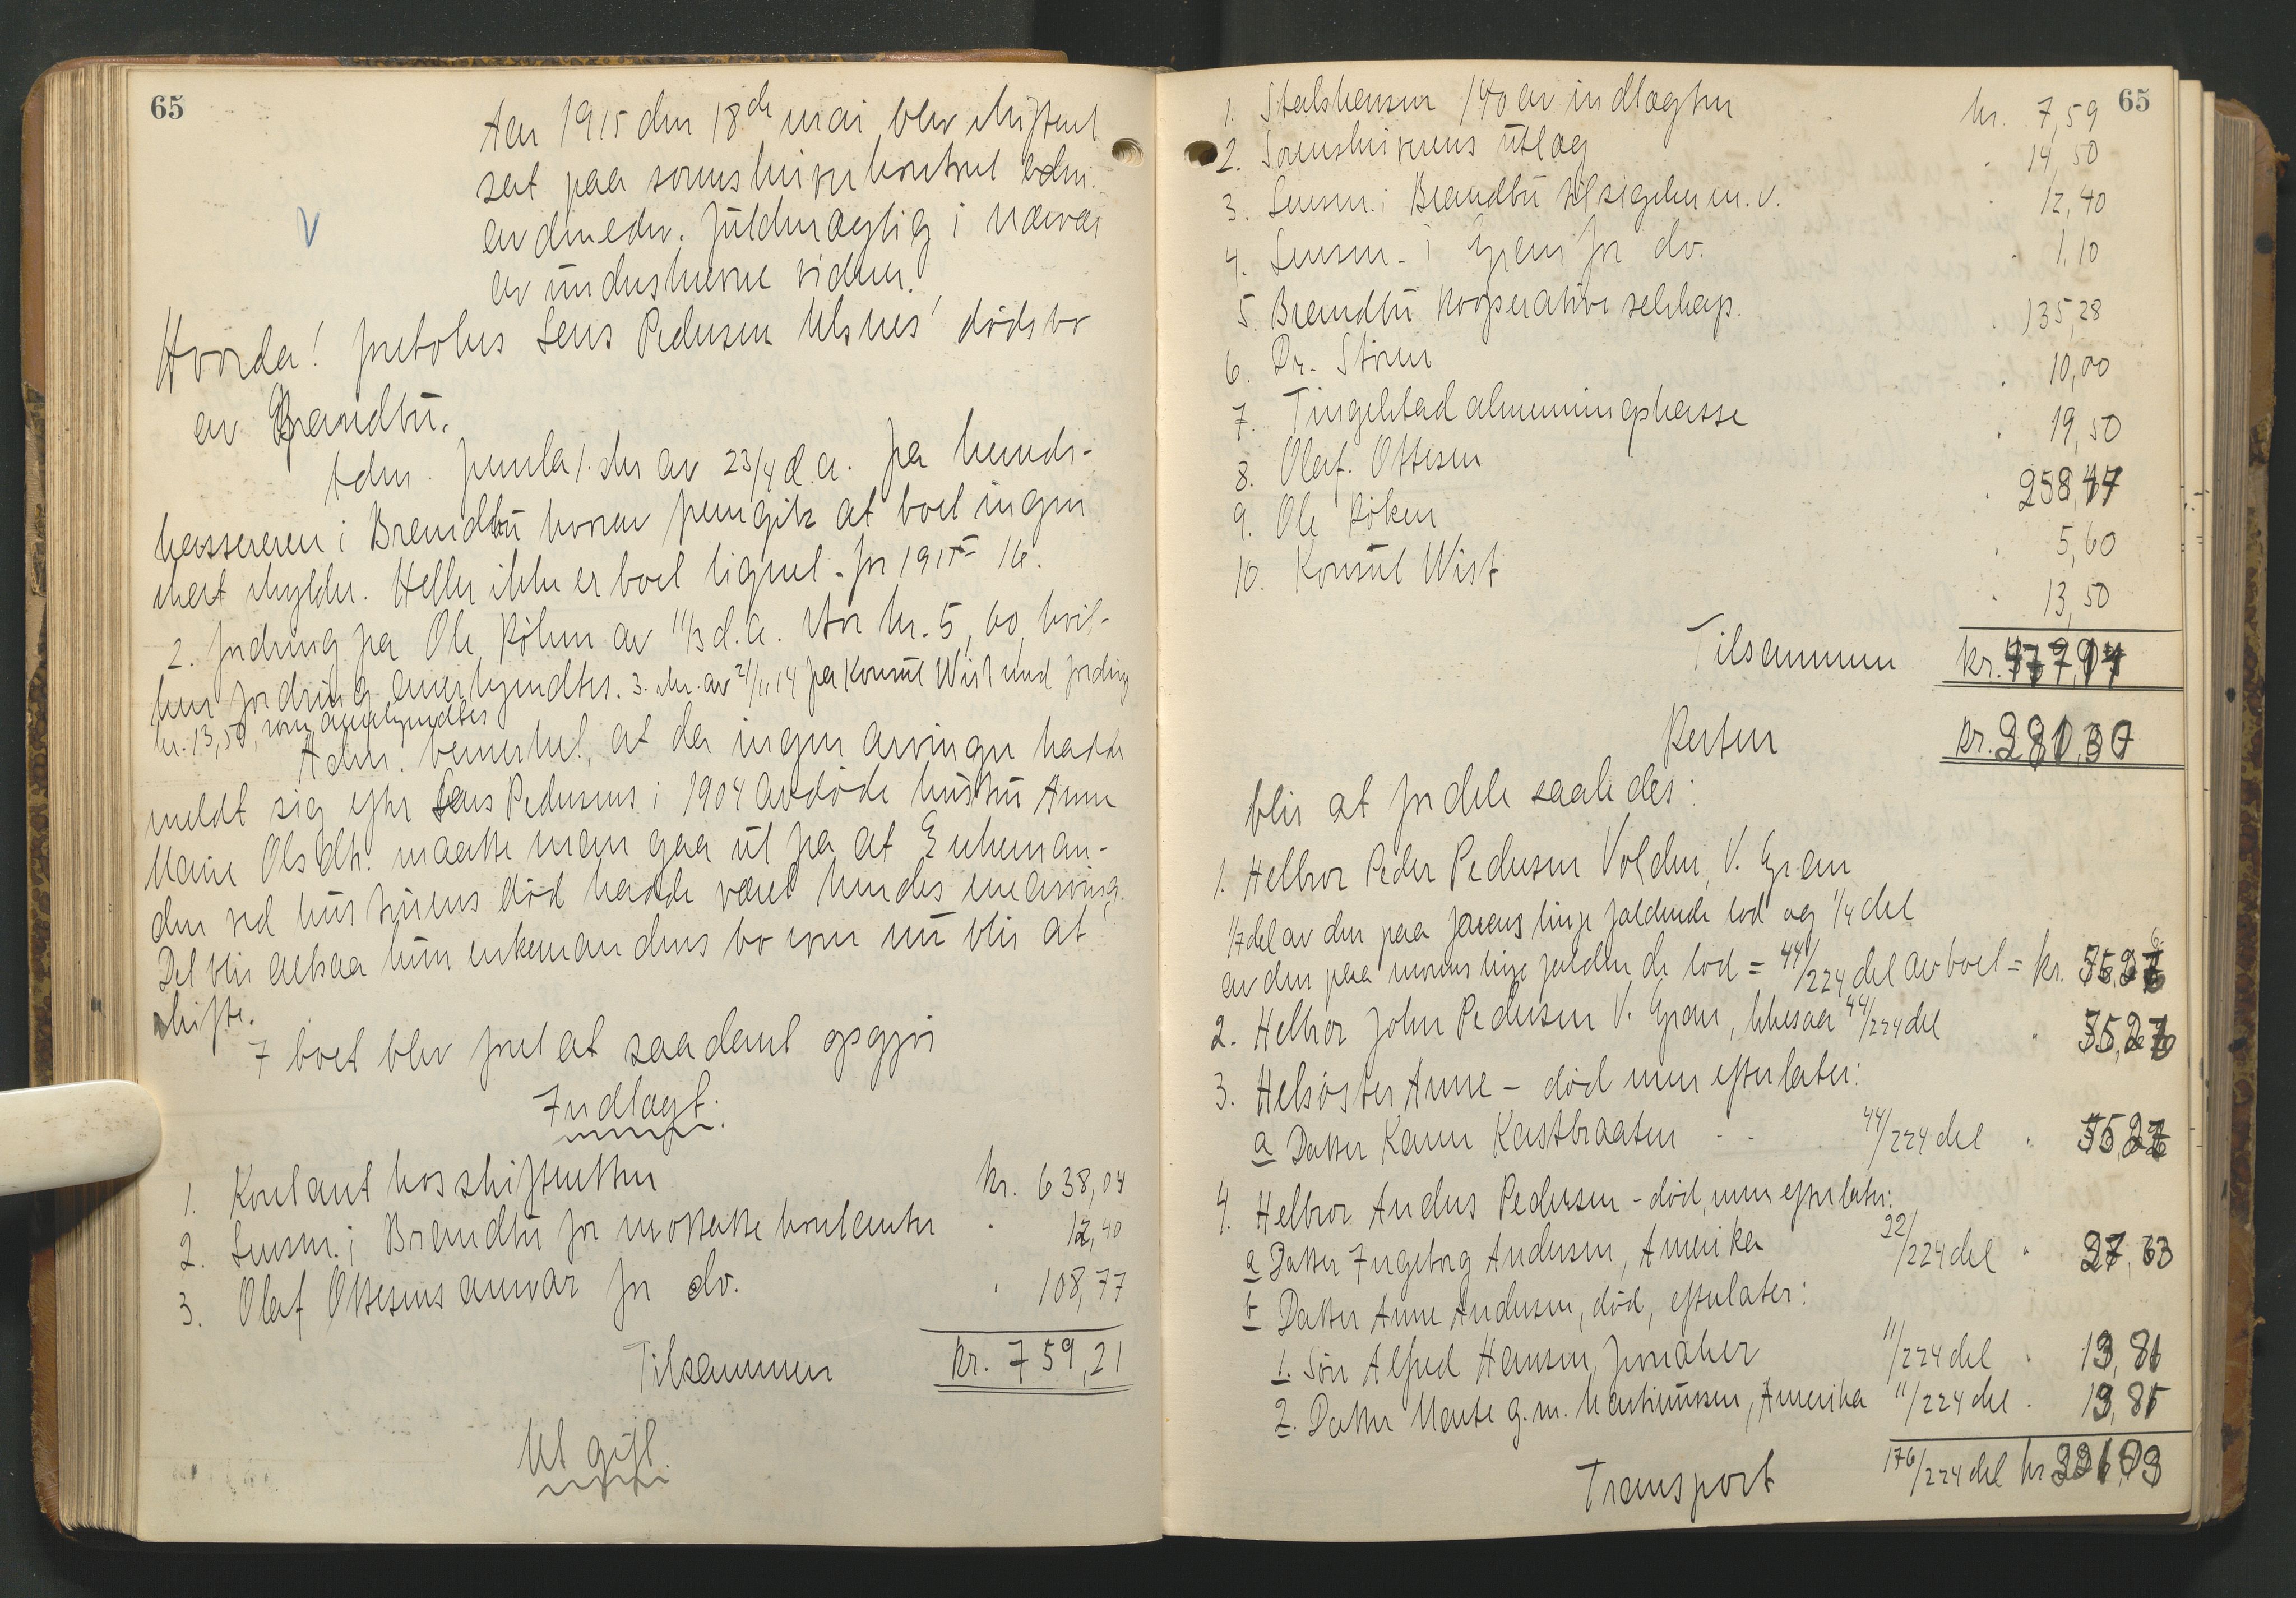 65
Aar 1915 den 18de mai blev skifteret
sat paa sorenskriverkontoret adm.
av dm edsv. fuldmægtig i nærvær
av underskrevne vidner.
V
Hvorda! foretokes Lars Pedersen Ulsnes' dødsbo
av Brandbu.
Adm. fremla 1. skr av 23/4 d.a. fra herreds-
kassereren i Brandbu hvorav fremgik at boet ingen
skat skylder. Heller ikke er boet lignet for 1915-16.
2. fordring fra Ole Röken av 11/3 d.a. stor kr. 5,60, hvil-
ken fordring anerkjendtes. 3. skr. av 21/11 14 fra Konsul Wist med fordring
kr. 13,50, som anerkjendtes
Adm. bemerket, at da ingen arvinger hadde
meldt sig efter Lars Pedersens i 1904 avdöde hustru Anne
Marie Olsdtr. maatte man gaa ut fra at Enkeman-
den ved hustruens död hadde været hendes enearving.
Det blir altsaa kun enkemandens bo som nu blir at
skifte.
I boet blev foretat saadant opgjör
Indtægt.
1. Kontant hos skifteretten kr. 638,04
2. Lensm. i Brandbu for mottatte kontanter " 12,40
3. Olaf Ottesens ansvar for do. " 108,77
Tilsammen kr. 759,21
Utgift.
65
1. Statskassen 1% av indtægten kr. 7,59
2. Sorenskriverens utlæg " 14,50
3. Lensm. i Brandbu tilsigelser m.v. " 12,40
4. Lensm. i Gran for do. " 1,10
5. Brandbu kooperative selskap. " 135,28
6. Dr. Stören " 10,00
7. Tingelstad almenningskasse " 19,50
8. Olaf Ottesen " 258,47
9. Ole Röken " 5,60
10. Konsul Wist " 13,50
Tilsammen kr. 477,94
Resten kr. 281,37
blir at fordele saaledes:
1. Helbror Peder Pedersen Volden, V. Gran
1/7 del av den paa farens linje faldende lod og 1/4 del
av den paa morens linje faldende lod = 44/224 del av boet = kr. 55,27
2. Helbror John Pedersen V. Gran, likesaa 44/224 del " 55,27
3. Helsöster Anne - död men efterlater:
a Datter Karen Kastbraaten - - 44/224 del " 55,27
4. Helbror Anders Pedersen - död, men efterlater:
a Datter Ingeborg Andersen, Amerika 22/224 del " 27,63
b Datter Anne Andersen, död, efterlater:
1. Sön Alfred Hansen, 11/224 del " 13,81
2. Datter Marte g.m. Martinusen, Amerika 11/224 del " 13,81
Transport 176/224 del kr 221,03